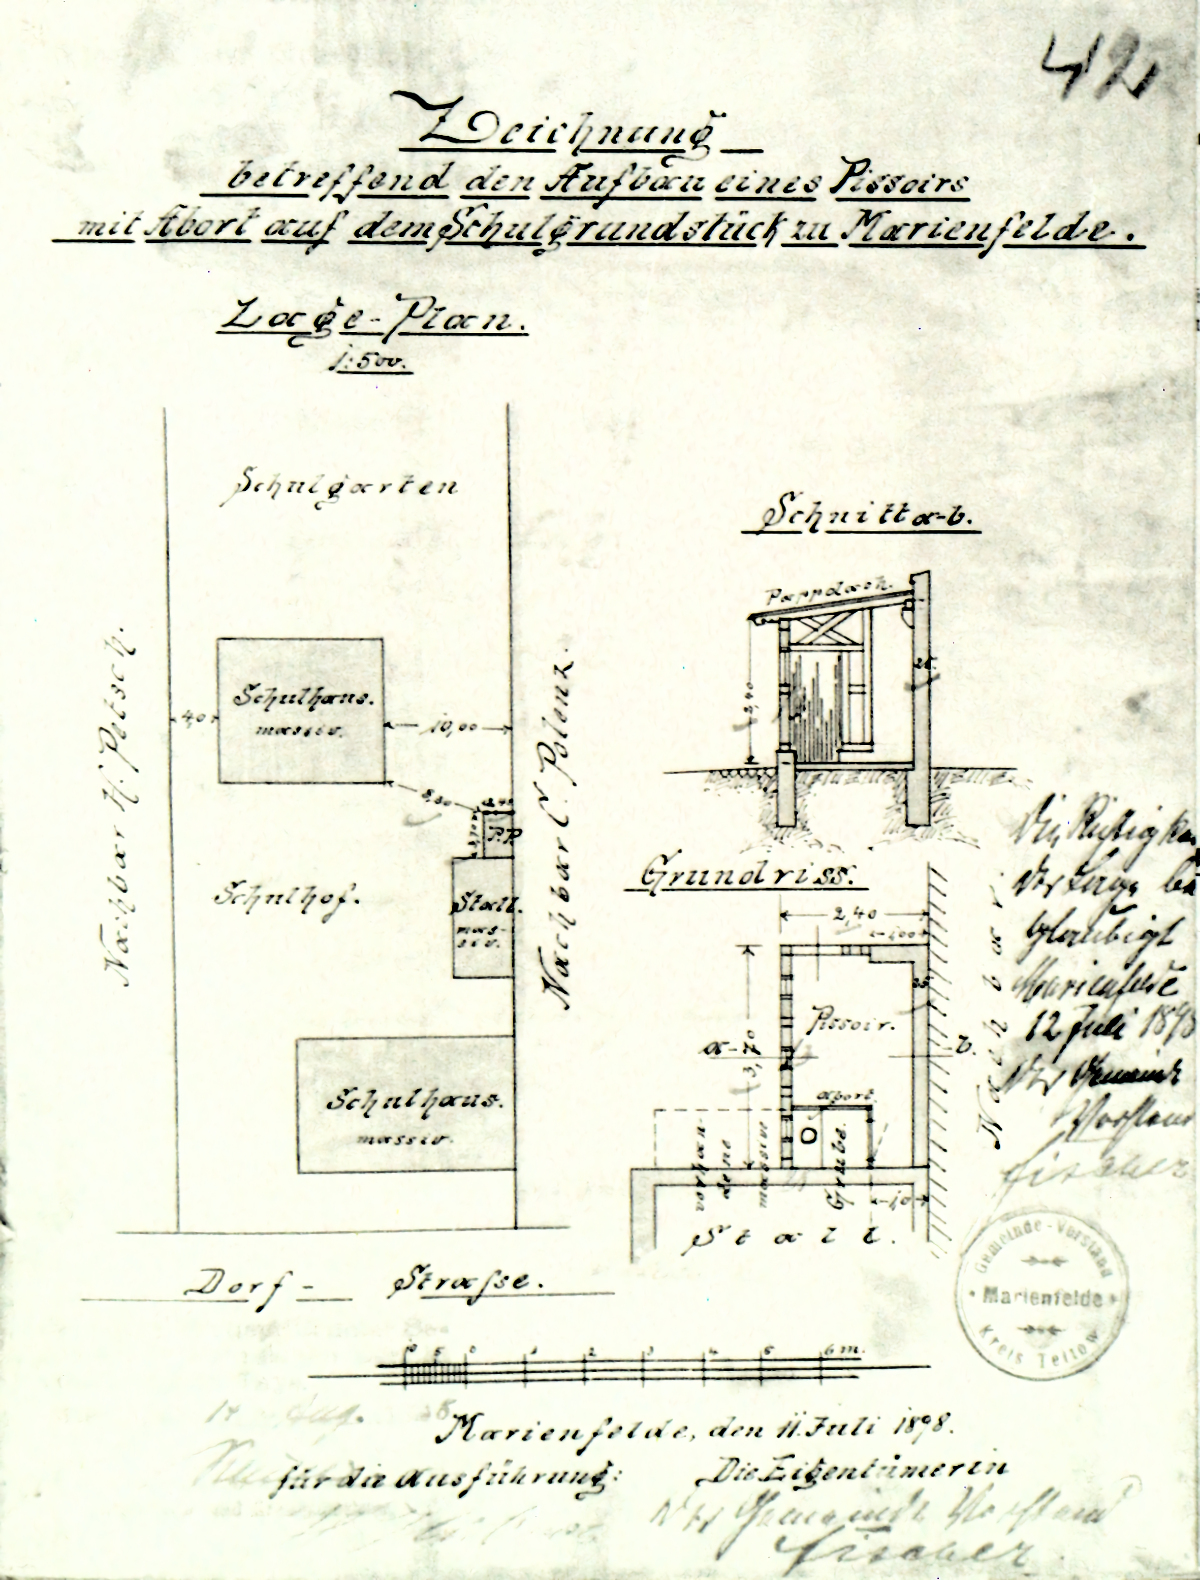 42
Zeichnung
betreffend den Aufbau eines Pissoirs
mit Abort auf dem Schulgrundstück zu Marienfelde.
Lage-Plan.
1:500.
Schulgarten
Schulhaus.
massiv.
4,0
10,00
8,50
2,40
3,70
P.P
Schulhof.
Stall.
mas-
siv.
Schulhaus.
massiv.
Nachbar H. Petsch.
Nachbar C. Polenz.
Dorf - Strasse.
Schnitt a-b.
Pappdach.
2,40
25
Grundriss.
2,40
1,00
25
3,70
Pissoir.
a-
b.
Abort.
Grube.
vorhan-
dene
massive
1,0
Stall.
Nachbar
Die Richtigkeit
der Lage be
glaubigt
Marienfelde
12 Juli 1898
Der Gemeinde
Vorstand
Fischer
Gemeinde-Vorstand
Marienfelde
Kreis Teltow
10 5 0 1 2 3 4 5 6 m.
Marienfelde, den 11. Juli 1898.
für die Ausführung:
Die Eigentümerin
Der Gemeinde Vorstand
Fischer